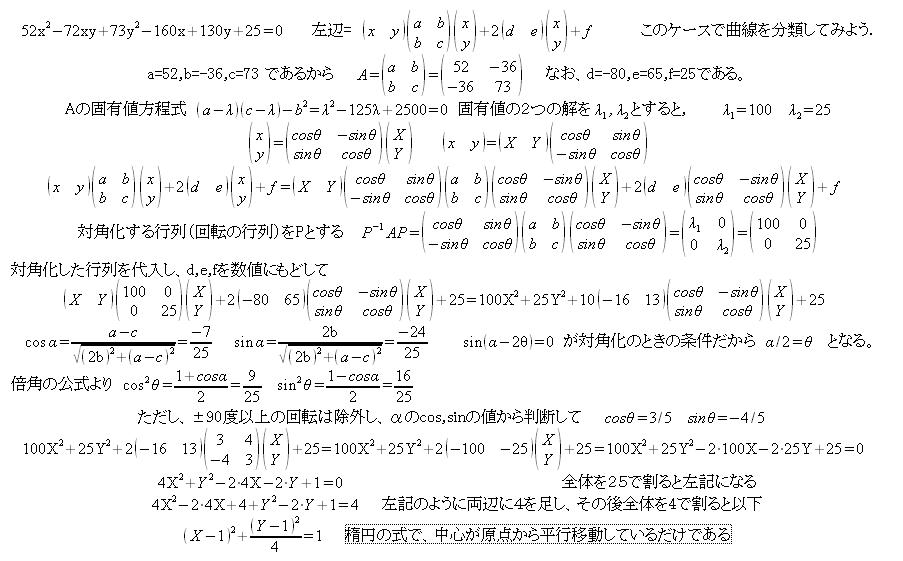 52x²−72xy+73y²−160x+130y+25=0 左辺= (x y)(a b / b c)(x / y)+2(d e)(x / y)+f このケースで曲線を分類してみよう.
a=52,b=-36,c=73 であるから A=(a b / b c)=(52 −36 / −36 73) なお、d=-80,e=65,f=25である。
Aの固有値方程式 (a−λ)(c−λ)−b²=λ²−125λ+2500=0 固有値の2つの解をλ₁,λ₂とすると, λ₁=100 λ₂=25
(x / y)=(cosθ −sinθ / sinθ cosθ)(X / Y) (x y)=(X Y)(cosθ sinθ / −sinθ cosθ)
(x y)(a b / b c)(x / y)+2(d e)(x / y)+f=(X Y)(cosθ sinθ / −sinθ cosθ)(a b / b c)(cosθ −sinθ / sinθ cosθ)(X / Y)+2(d e)(cosθ −sinθ / sinθ cosθ)(X / Y)+f
対角化する行列(回転の行列)をPとする P⁻¹AP=(cosθ sinθ / −sinθ cosθ)(a b / b c)(cosθ −sinθ / sinθ cosθ)=(λ₁ 0 / 0 λ₂)=(100 0 / 0 25)
対角化した行列を代入し、d,e,fを数値にもどして
(X Y)(100 0 / 0 25)(X / Y)+2(−80 65)(cosθ −sinθ / sinθ cosθ)(X / Y)+25=100X²+25Y²+10(−16 13)(cosθ −sinθ / sinθ cosθ)(X / Y)+25
cosα=(a−c)/√((2b)²+(a−c)²)=−7/25 sinα=2b/√((2b)²+(a−c)²)=−24/25 sin(α−2θ)=0 が対角化のときの条件だから α/2=θ となる。
倍角の公式より cos²θ=(1+cosα)/2=9/25 sin²θ=(1−cosα)/2=16/25
ただし、±90度以上の回転は除外し、αのcos,sinの値から判断して cosθ=3/5 sinθ=−4/5
100X²+25Y²+2(−16 13)(3 4 / −4 3)(X / Y)+25=100X²+25Y²+2(−100 −25)(X / Y)+25=100X²+25Y²−2·100X−2·25Y+25=0
4X²+Y²−2·4X−2·Y+1=0 全体を25で割ると左記になる
4X²−2·4X+4+Y²−2·Y+1=4 左記のように両辺に4を足し、その後全体を4で割ると以下
(X−1)²+(Y−1)²/4=1 楕円の式で、中心が原点から平行移動しているだけである